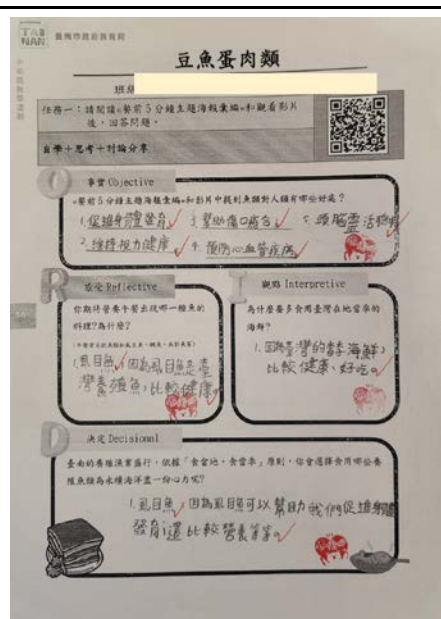 TAI
NAN 臺南市政府教育局
豆魚蛋肉類
班級
任務一:請閱讀«餐前5分鐘主題海報彙編»和觀看影片
後,回答問題。
自學+思考+討論分享
O 事實 Objective
«餐前5分鐘主題海報彙編»和影片中提到魚類對人類有哪些好處?
1.促進身體發育 3.幫助傷口癒合 5.頭腦靈活
2.維持視力健康 4.預防心血管疾病
R 感受 Reflective
你期待營養午餐出現哪一種魚的
料理?為什麼?
1.虱目魚,因為虱目魚是臺
灣養殖魚,比較健康。
I 觀點 Interpretive
為什麼要多食用臺灣在地當季的
海鮮?
1.因為臺灣的當季海鮮
比較健康、好吃。
D 決定 Decisional
臺南的養殖漁業盛行,依據「食當地,食當季」原則,你會選擇食用哪些養
殖魚類為永續海洋盡一份心力呢?
1.虱目魚,因為虱目魚可以幫助我們促進身體
發育,還比較營養等等。